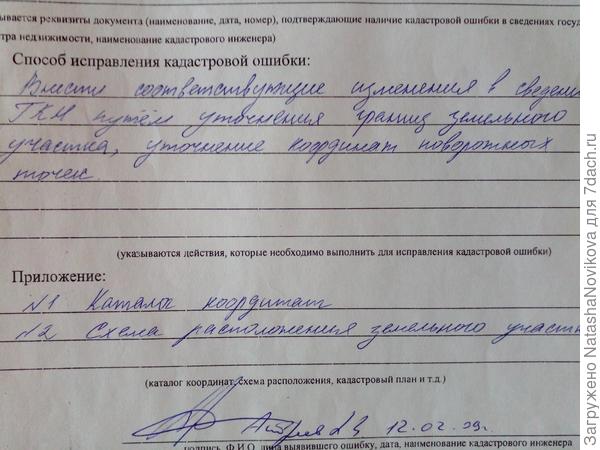 ывается реквизиты документа (наименование, дата, номер), подтверждающие наличие кадастровой ошибки в сведениях госуд
тра недвижимости, наименование кадастрового инженера)
Способ исправления кадастровой ошибки:
Внести соответствующие изменения в сведени
ГКН путём уточнения границ земельного
участка, уточнение координат поворотных
точек.
(указываются действия, которые необходимо выполнить для исправления кадастровой ошибки)
Приложение:
№1 Каталог координат
№2 Схема расположения земельного участк
(каталог координат, схема расположения, кадастровый план и т.д.)
12.02.09г.
подпись, Ф.И.О. лица выявившего ошибку, дата, наименование кадастрового инженера
Загружено NatashaNovikova для 7dach.ru